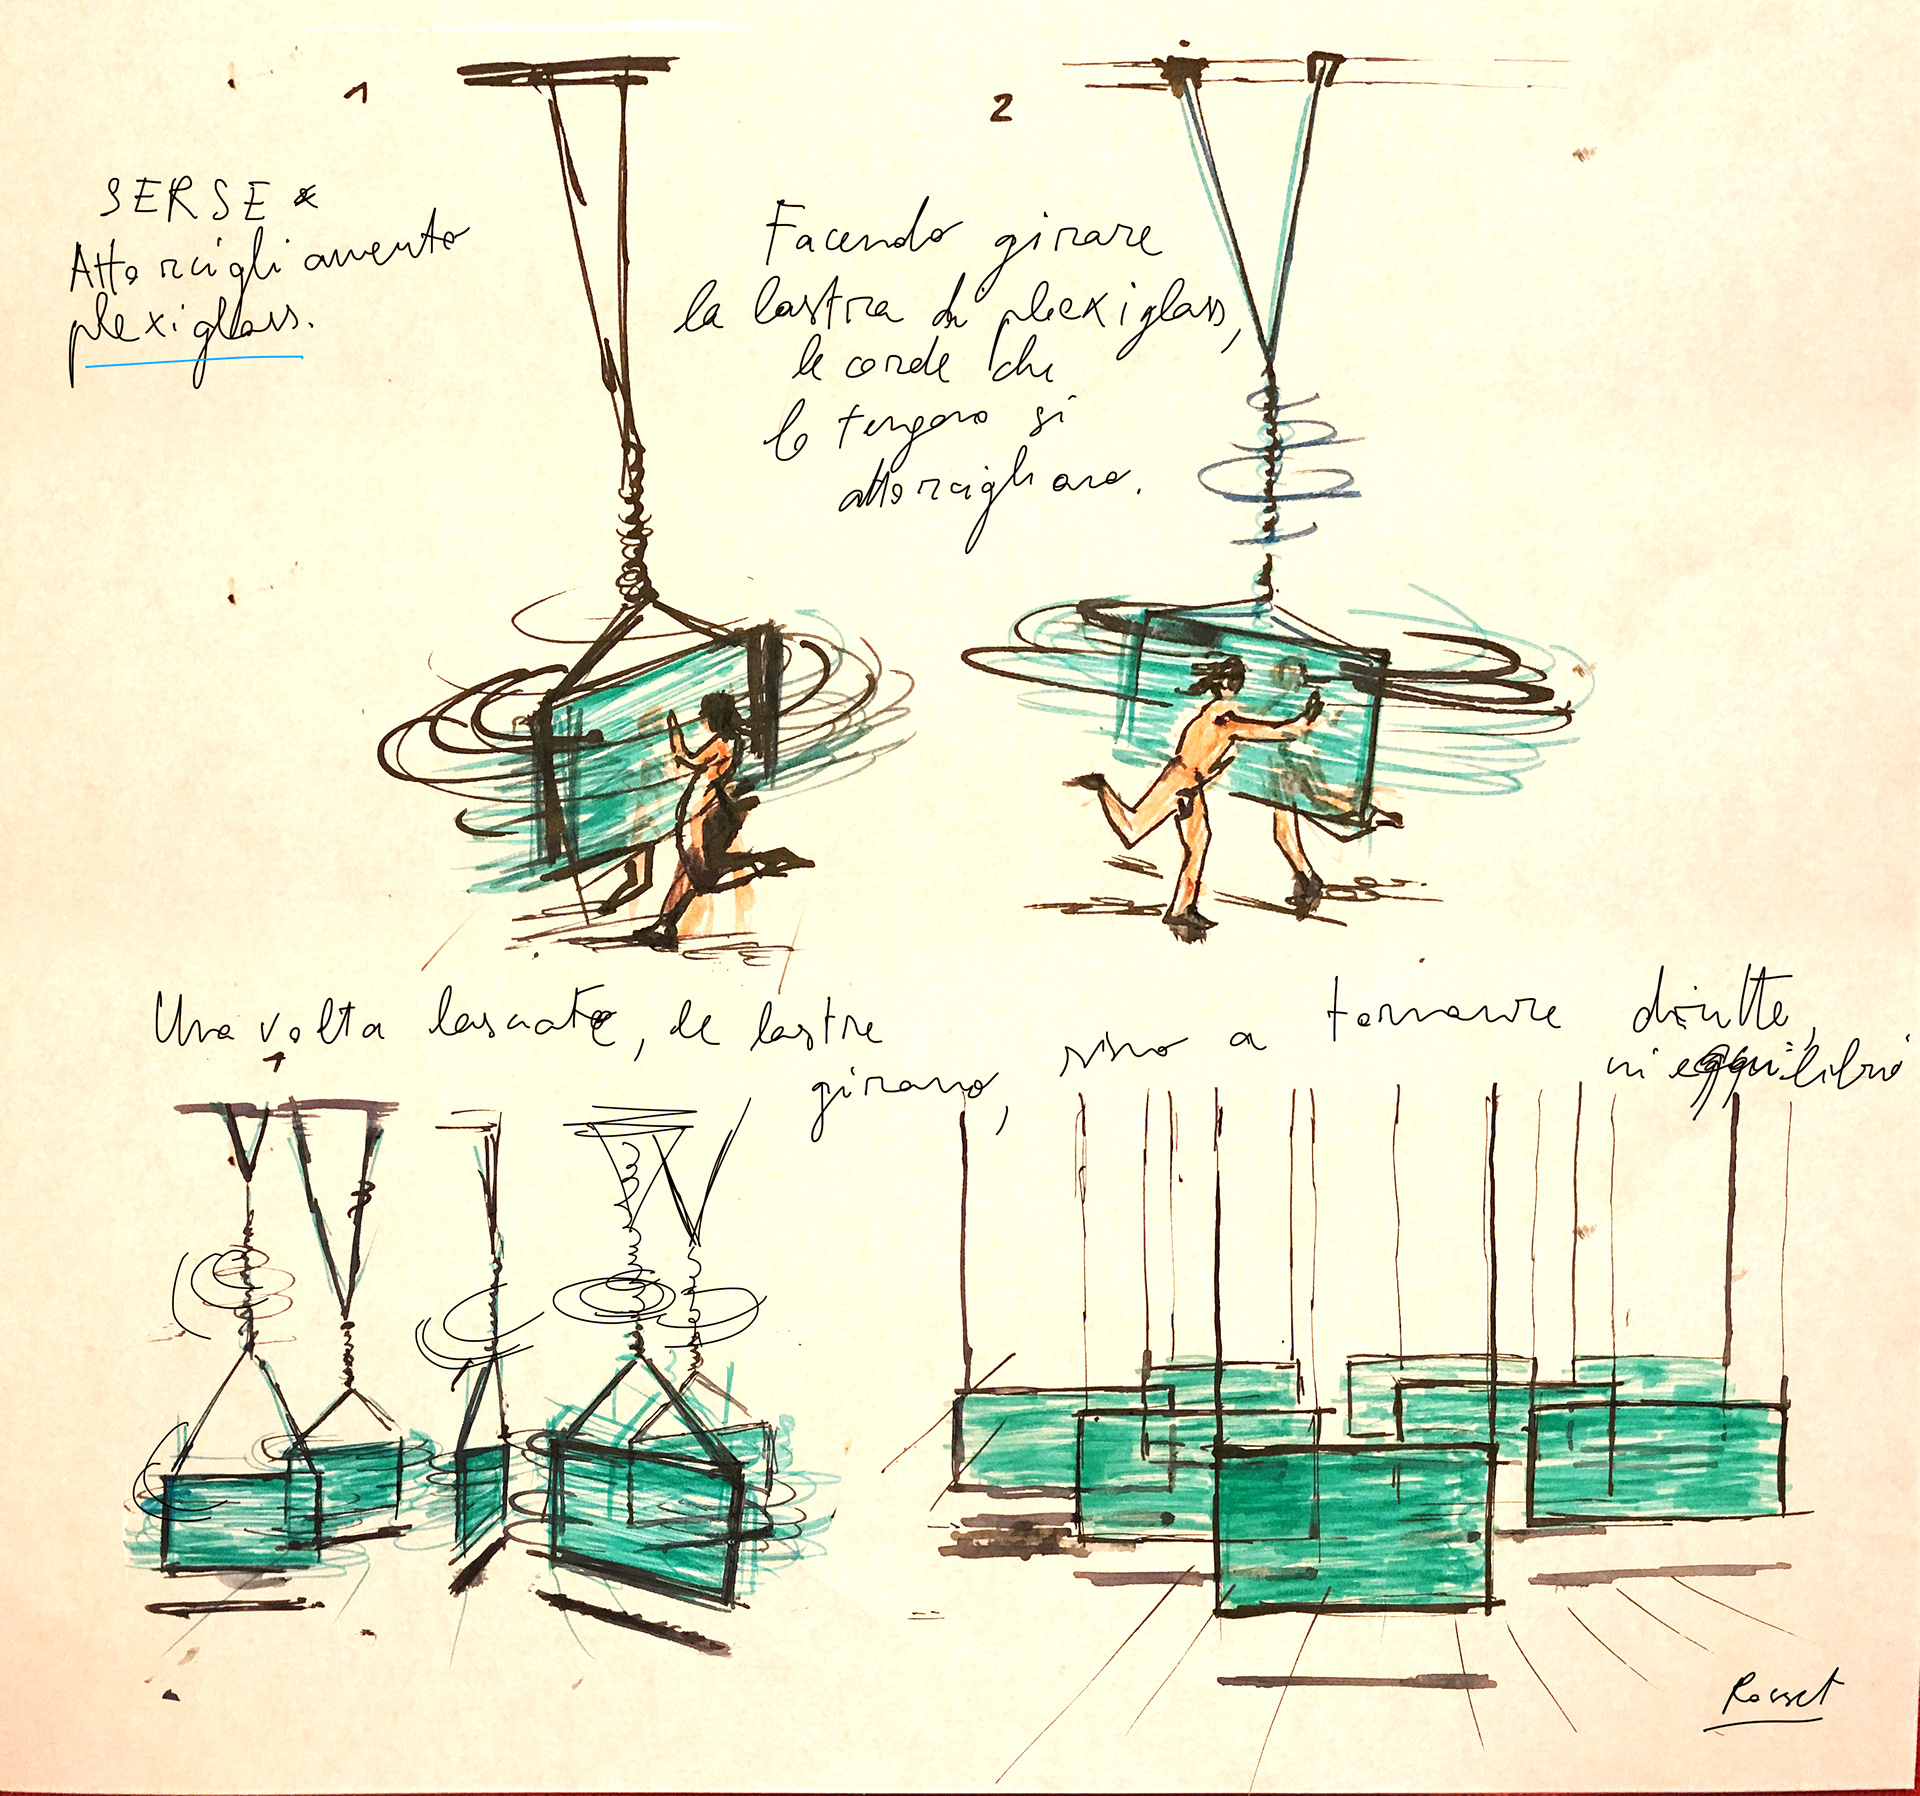 1
2
SERSE
Attorcigliamento
plexiglass.
Facendo girare
la lastra di plexiglass,
le corde che
lo tengono si
attorcigliano.
Una volta lasciate, le lastre
girano,
sino a tornare diritte,
in equilibrio
1
Rosset